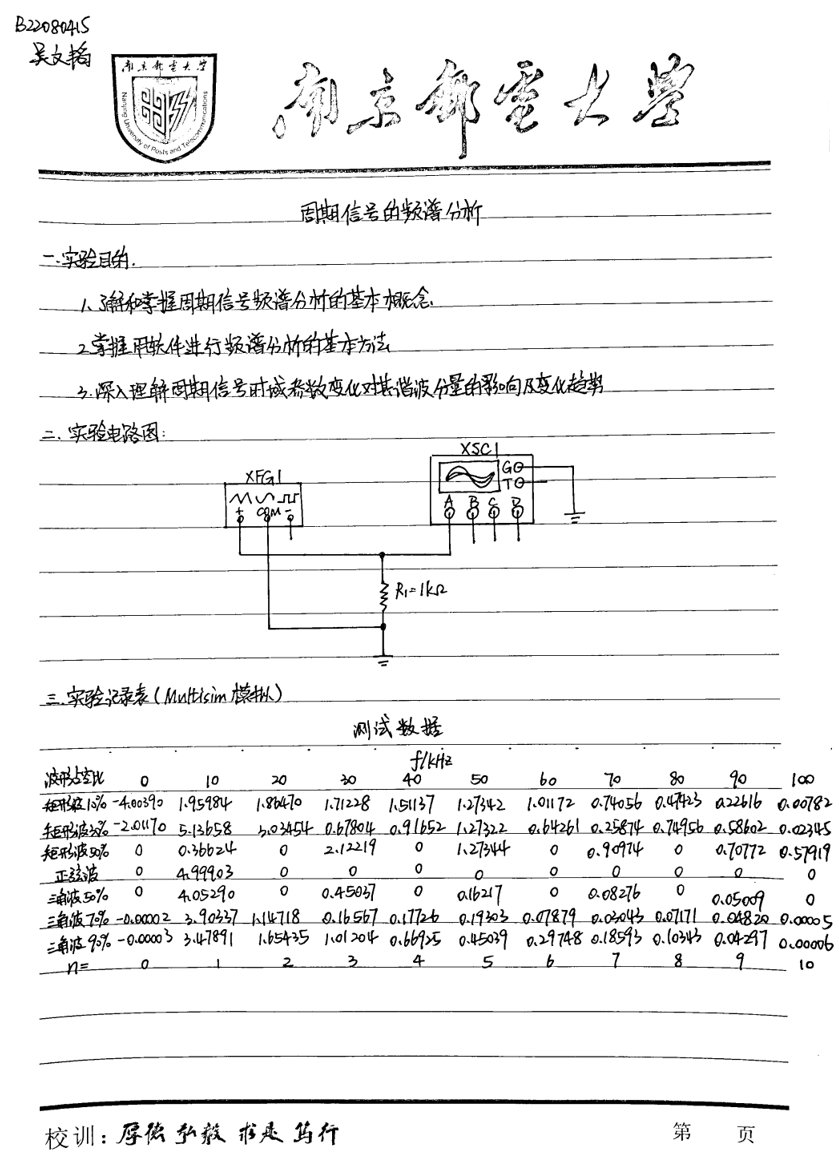 B22080415
吴文韬
南京邮电大学
Nanjing University of Posts and Telecommunications
南京邮电大学
周期信号的频谱分析
一.实验目的.
1.了解和掌握周期信号频谱分析的基本概念.
2.掌握用软件进行频谱分析的基本方法
3.深入理解周期信号时域参数变化对其谐波分量的影响及变化趋势
二.实验电路图:
XSC1
XFG1
G
T
A B C D
+ COM -
R1=1kΩ
三.实验记录表(Multisim模拟)
测试数据
f/kHz
波形占空比 0 10 20 30 40 50 60 70 80 90 100
矩形波10% -4.00390 1.95984 1.86470 1.71228 1.51137 1.27342 1.01172 0.74056 0.47423 0.22616 0.00782
矩形波30% -2.01170 5.13658 3.03454 0.67804 0.91652 1.27322 0.64261 0.25874 0.74956 0.58602 0.02345
矩形波50% 0 0.36624 0 2.12219 0 1.27344 0 0.90974 0 0.70772 0.57919
正弦波 0 4.99903 0 0 0 0 0 0 0 0 0
三角波50% 0 4.05290 0 0.45037 0 0.16217 0 0.08276 0 0.05009 0
三角波70% -0.00002 3.90337 1.14718 0.16567 0.17726 0.19303 0.07879 0.03043 0.07171 0.04820 0.00005
三角波90% -0.00003 3.47891 1.65435 1.01204 0.66925 0.45039 0.29748 0.18593 0.10343 0.04297 0.00006
n= 0 1 2 3 4 5 6 7 8 9 10
校训:厚德 弘毅 求是 笃行
第 页